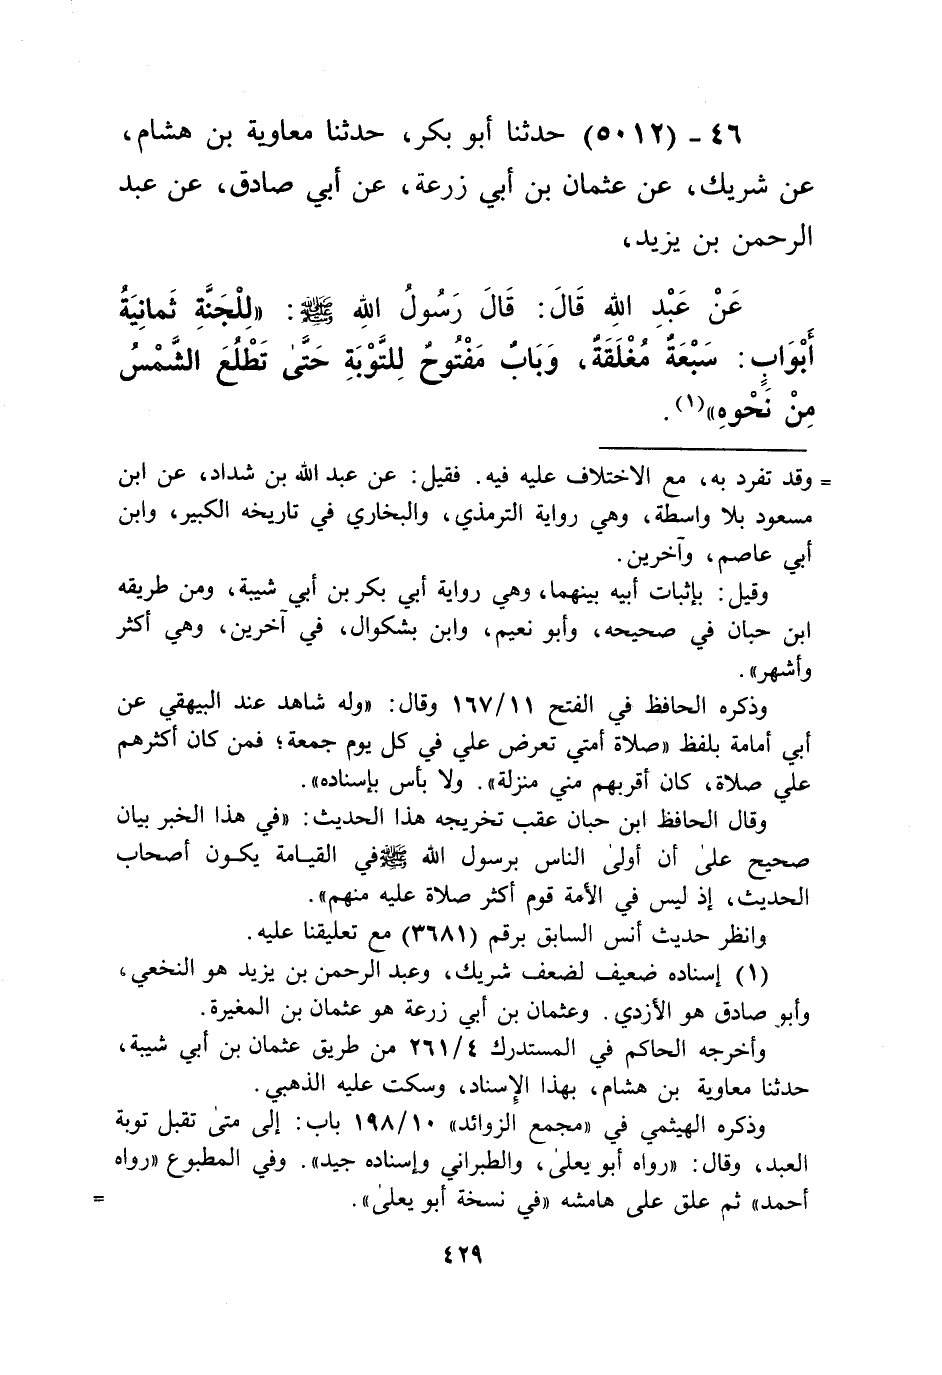 ٤٦ - (٥٠١٢) حدثنا أبو بكر، حدثنا معاوية بن هشام،
عن شريك، عن عثمان بن أبي زرعة، عن أبي صادق، عن عبد
الرحمن بن يزيد،
عَنْ عَبْدِ اللهِ قَالَ: قَالَ رَسُولُ اللهِ ﷺ: «لِلْجَنَّةِ ثَمانِيَةُ
أَبْوَابٍ: سَبْعَةٌ مُغْلَقَةٌ، وَبَابٌ مَفْتُوحٌ لِلتَّوْبَةِ حَتَّىٰ تَطْلُعَ الشَّمْسُ
مِنْ نَحْوِهِ»(١).
= وقد تفرد به، مع الاختلاف عليه فيه. فقيل: عن عبد الله بن شداد، عن ابن
مسعود بلا واسطة، وهي رواية الترمذي، والبخاري في تاريخه الكبير، وابن
أبي عاصم، وآخرين.
وقيل: بإثبات أبيه بينهما، وهي رواية أبي بكر بن أبي شيبة، ومن طريقه
ابن حبان في صحيحه، وأبو نعيم، وابن بشكوال، في آخرين، وهي أكثر
وأشهر».
وذكره الحافظ في الفتح ١٦٧/١١ وقال: «وله شاهد عند البيهقي عن
أبي أمامة بلفظ «صلاة أمتي تعرض علي في كل يوم جمعة؛ فمن كان أكثرهم
علي صلاة، كان أقربهم مني منزلة». ولا بأس بإسناده».
وقال الحافظ ابن حبان عقب تخريجه هذا الحديث: «في هذا الخبر بيان
صحيح علىٰ أن أولىٰ الناس برسول الله ﷺ في القيامة يكون أصحاب
الحديث، إذ ليس في الأمة قوم أكثر صلاة عليه منهم».
وانظر حديث أنس السابق برقم (٣٦٨١) مع تعليقنا عليه.
(١) إسناده ضعيف لضعف شريك، وعبد الرحمن بن يزيد هو النخعي،
وأبو صادق هو الأزدي. وعثمان بن أبي زرعة هو عثمان بن المغيرة.
وأخرجه الحاكم في المستدرك ٢٦١/٤ من طريق عثمان بن أبي شيبة،
حدثنا معاوية بن هشام، بهذا الإسناد، وسكت عليه الذهبي.
وذكره الهيثمي في «مجمع الزوائد» ١٩٨/١٠ باب: إلى متىٰ تقبل توبة
العبد، وقال: «رواه أبو يعلىٰ، والطبراني وإسناده جيد». وفي المطبوع «رواه
أحمد» ثم علق على هامشه «في نسخة أبو يعلىٰ». =
٤٢٩